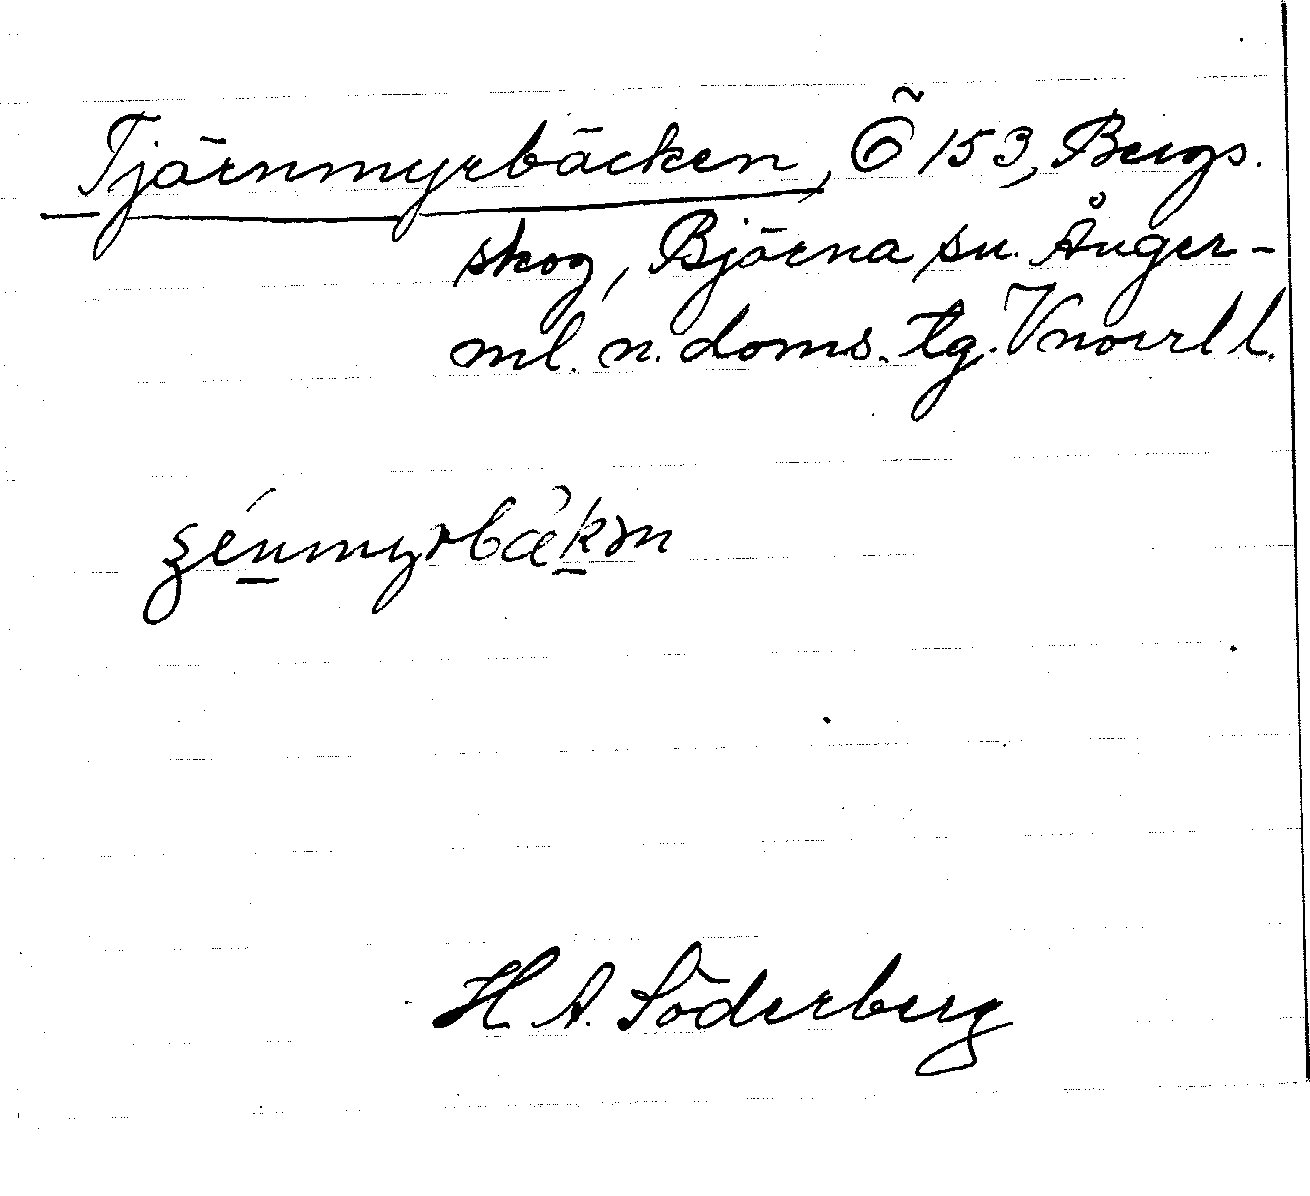 Tjärnmyrbäcken, Ö 153, Bergs.
skog, Björna sn. Ånger-
ml. n. doms. tg. Vnorrl l.
H A. Söderberg